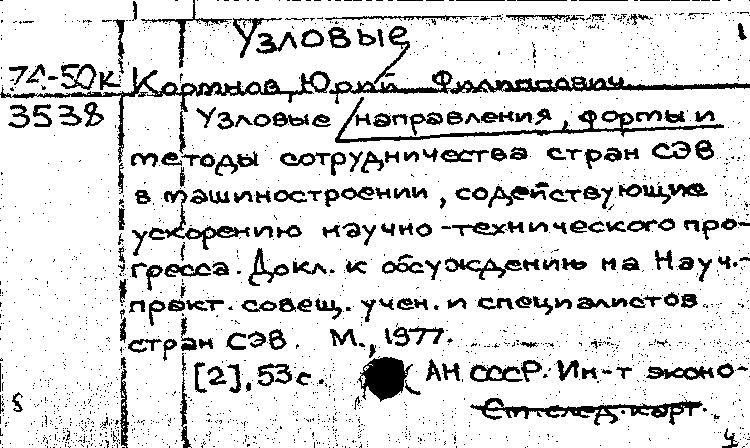 Узловые
1
74-50к Кормнов, Юрий Филиппович
3538 Узловые направления, формы и
методы сотрудничества стран СЭВ
в машиностроении, содействующие
ускорению научно-технического про-
гресса. Докл. к обсуждению на Науч.-
практ. совещ. учен. и специалистов
стран СЭВ. М., 1977.
[2], 53 с. (АН СССР. Ин-т эконо-
См. след. карт.